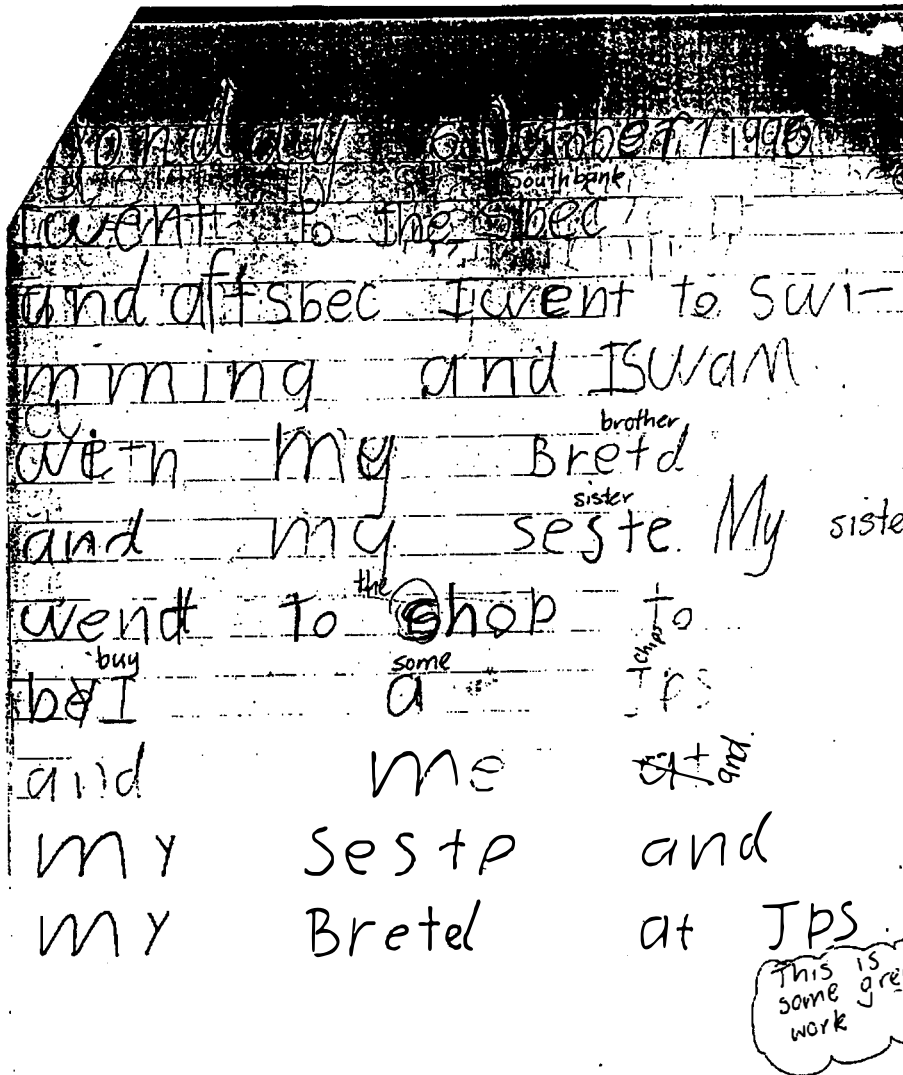 Monday October 1996
southbank
I went to the Sbec
and aft sbec I went to swi-
mming and I swam
brother
with my Bretd
sister
and my seste. My siste
the
went to shop to
buy some chips
beI a Jps
and me at and.
my seste and
my Breted at Jps.
This is
some gre
work